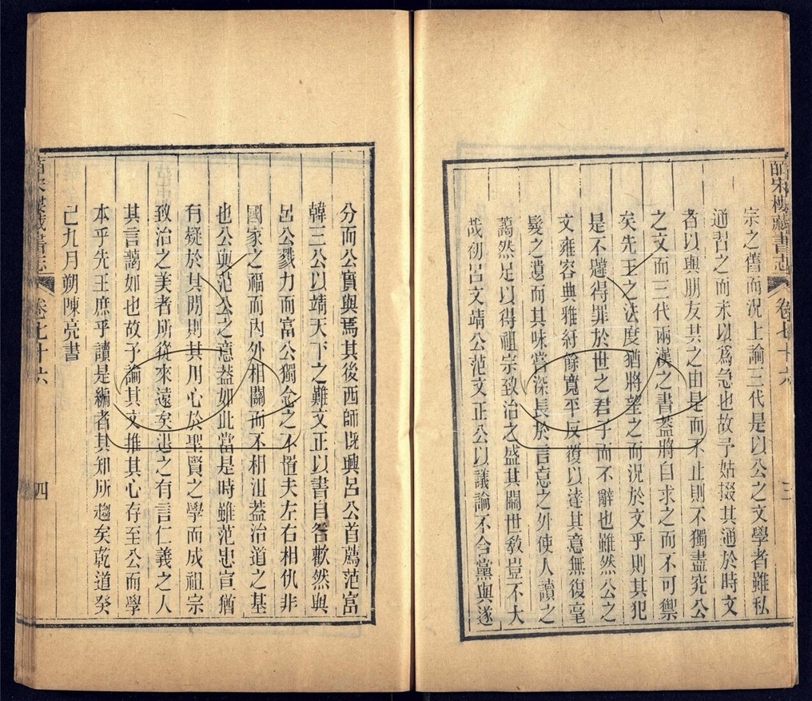 皕宋樓藏書志 卷七十六 三
宗之舊而況上論三代是以公之文學者雖私
通習之而未以爲急也故予姑掇其通於時文
者以與朋友共之由是而不止則不獨盡究公
之文而三代兩漢之書蓋將自求之而不可禦
矣先王之法度猶將望之而況於文乎則其犯
是不韙得罪於世之君子而不辭也雖然公之
文雍容典雅紆餘寬平反覆以達其意無復毫
髮之遺而其味常深長於言意之外使人讀之
藹然足以得祖宗致治之盛其關世敎豈不大
哉初呂文靖公范文正公以議論不合黨與遂
分而公實與焉其後西師旣興呂公首薦范富
韓三公以靖天下之難文正以書自咎歡然與
呂公戮力而富公獨念之不置夫左右相仇非
國家之福而內外相關而不相沮蓋治道之基
也公與范公之意蓋如此當是時雖范忠宣猶
有疑於其閒則其用心於聖賢之學而成祖宗
致治之美者所從來遠矣退之有言仁義之人
其言藹如也故予論其文推其心存至公而學
本乎先王庶乎讀是編者其知所趨矣乾道癸
巳九月朔陳亮書
皕宋樓藏書志 卷七十六 四